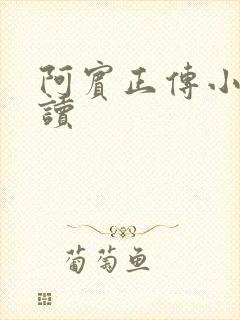 阿賓正傳小
讀
葡萄鱼